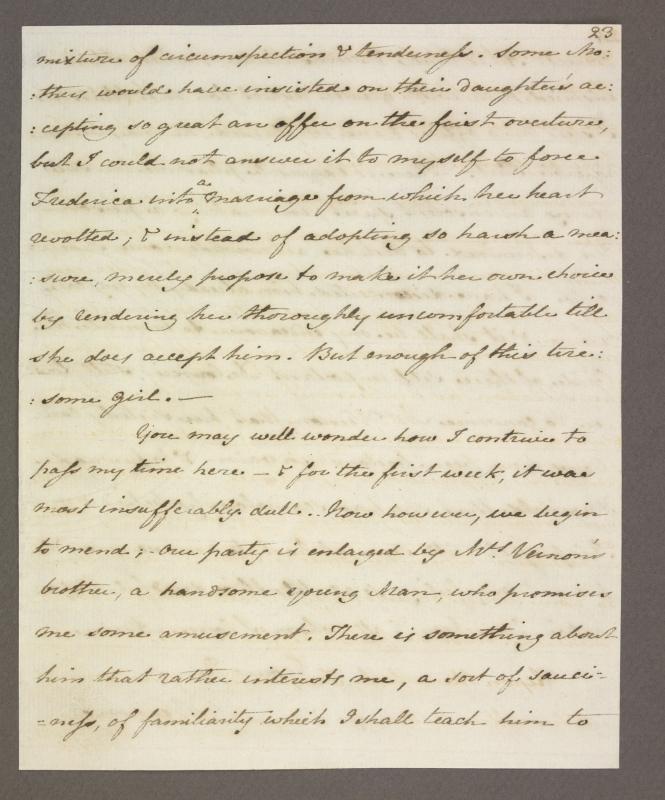 23
mixture of circumspection & tenderness. Some Mo:
:thers would have insisted on their daughter's ac:
:cepting so great an offer on the first overture,
but I could not answer it to myself to force
Frederica into a marriage from which her heart
revolted; & instead of adopting so harsh a mea:
:sure, merely propose to make it her own choice
by rendering her thoroughly uncomfortable till
she does accept him. But enough of this tire:
:some girl. —
You may well wonder how I contrive to
pass my time here — & for the first week, it was
most insufferably dull. Now however, we begin
to mend; our party is enlarged by Mrs Vernon's
brother, a handsome young Man, who promises
me some amusement. There is something about
him that rather interests me, a sort of sauci-
-ness, of familiarity which I shall teach him to